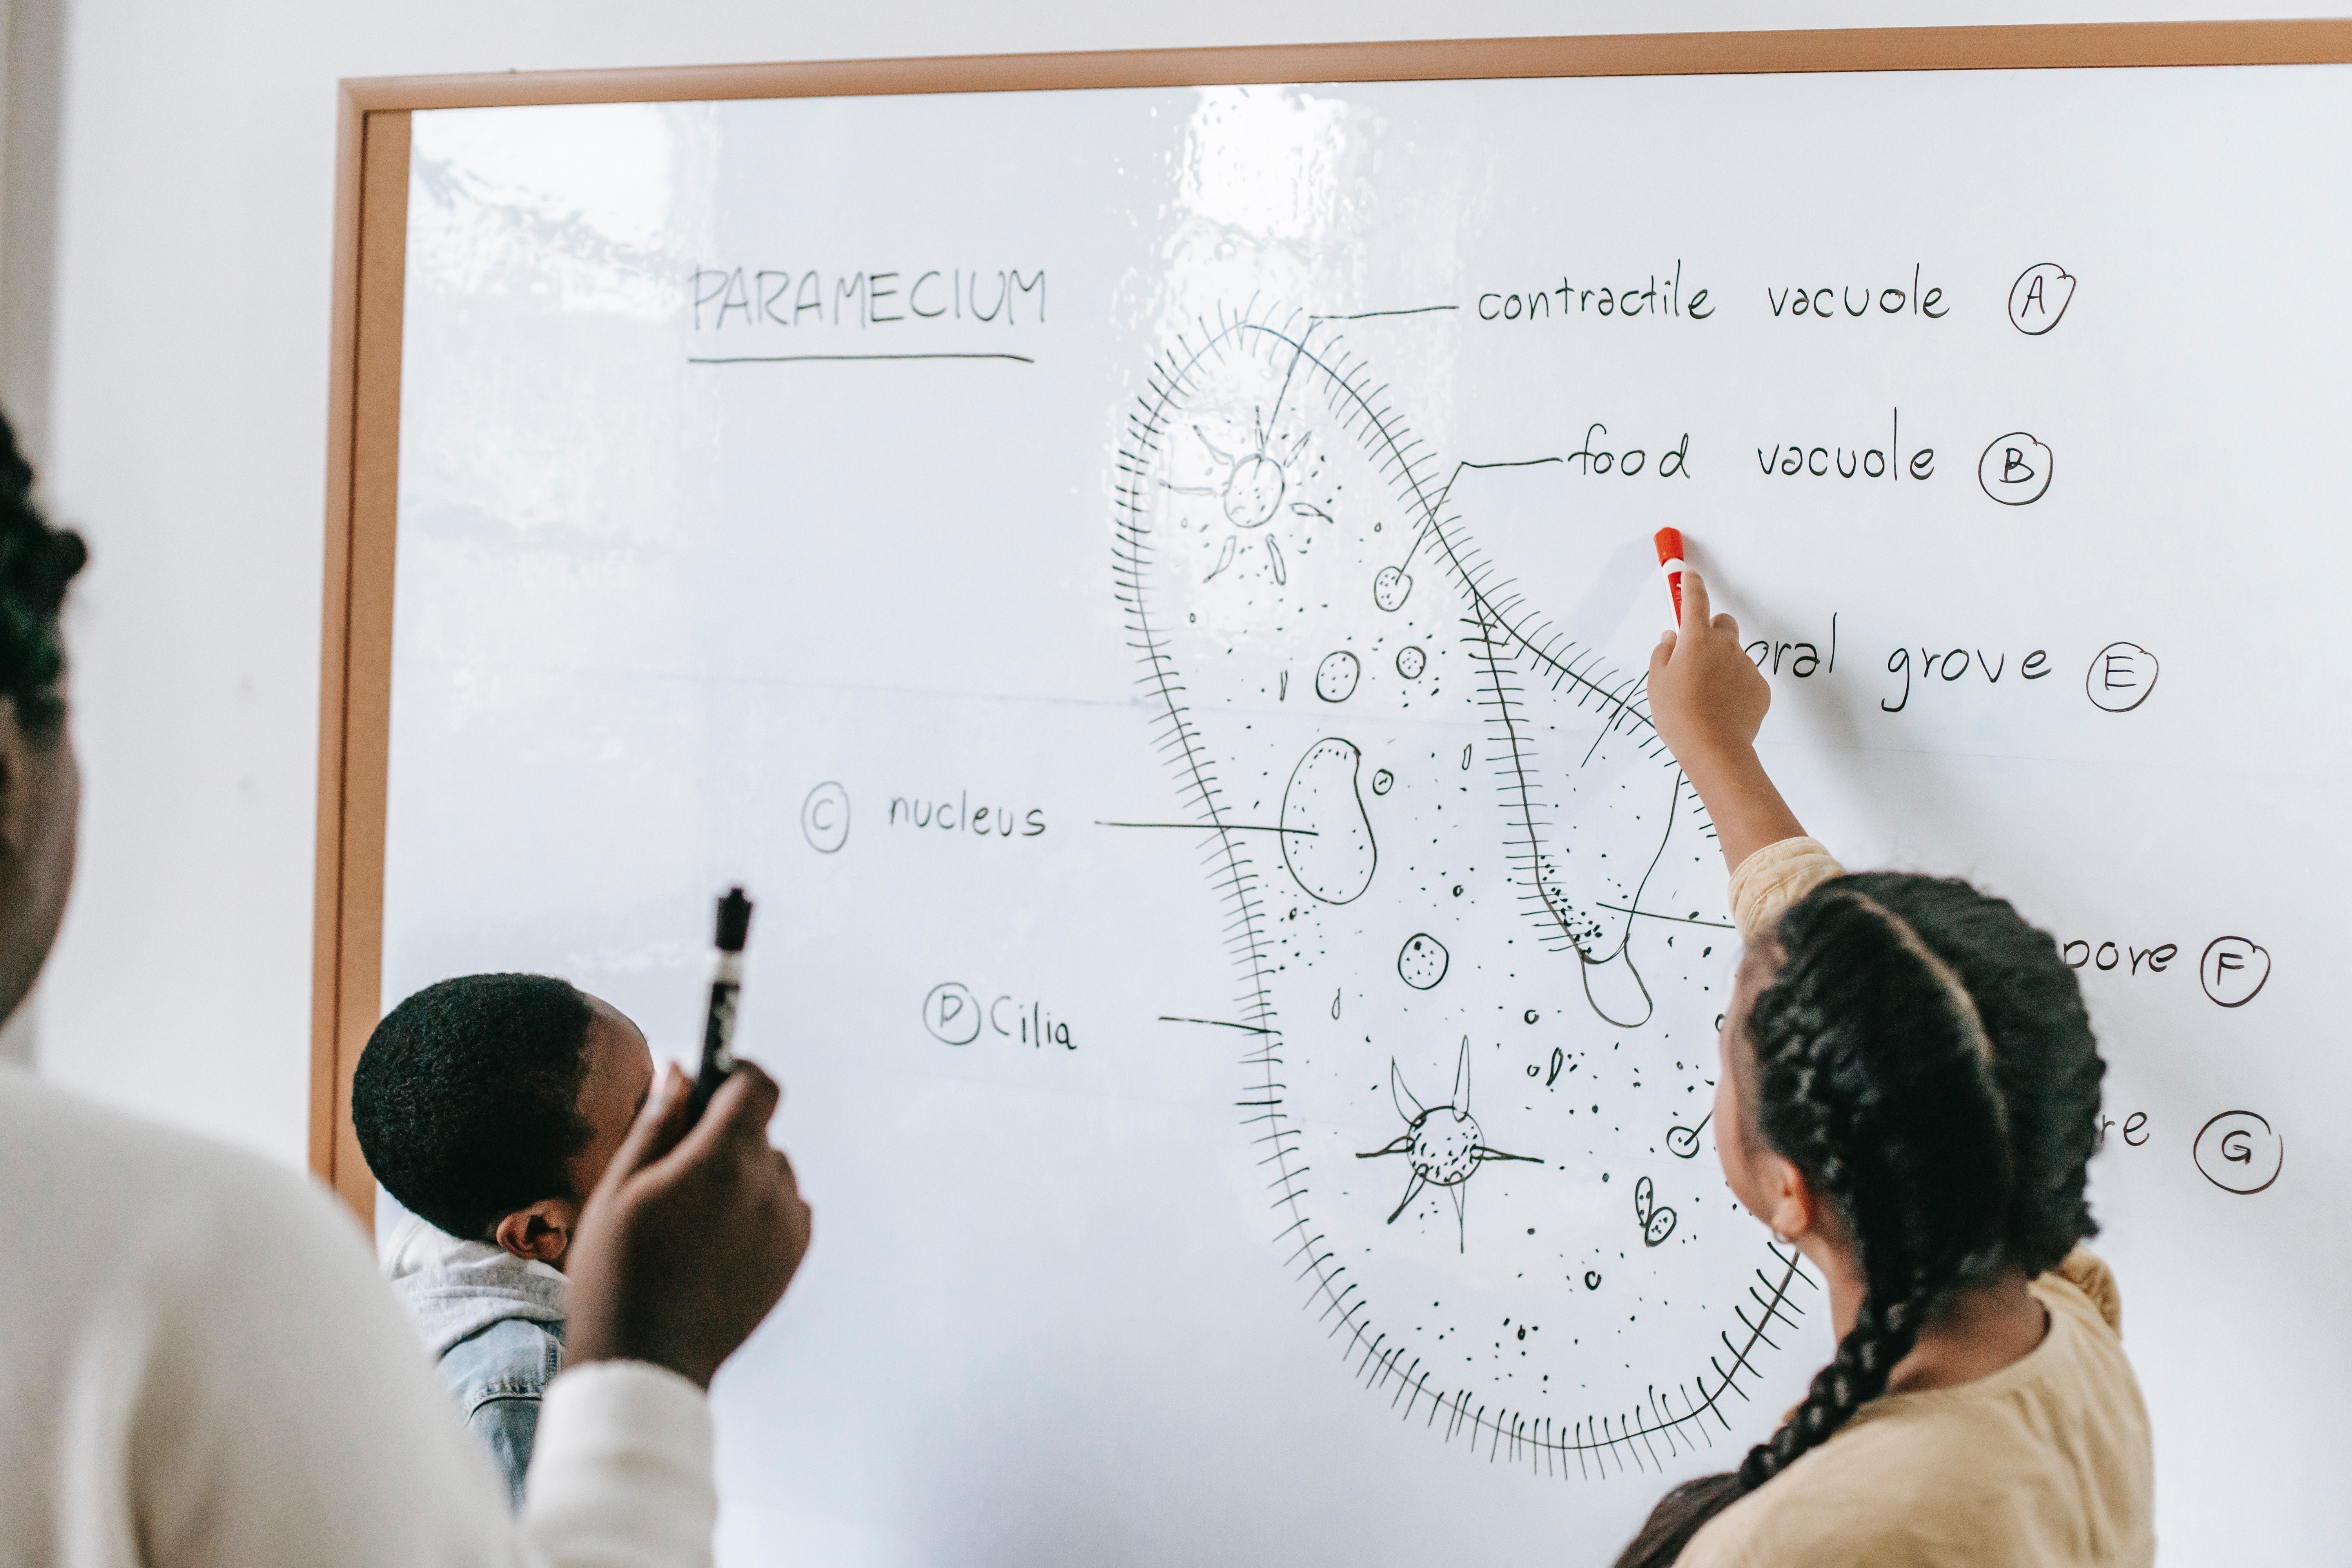 PARAMECIUM
contractile vacuole A
food vacuole B
oral grove E
C nucleus
pore F
D Cilia
G